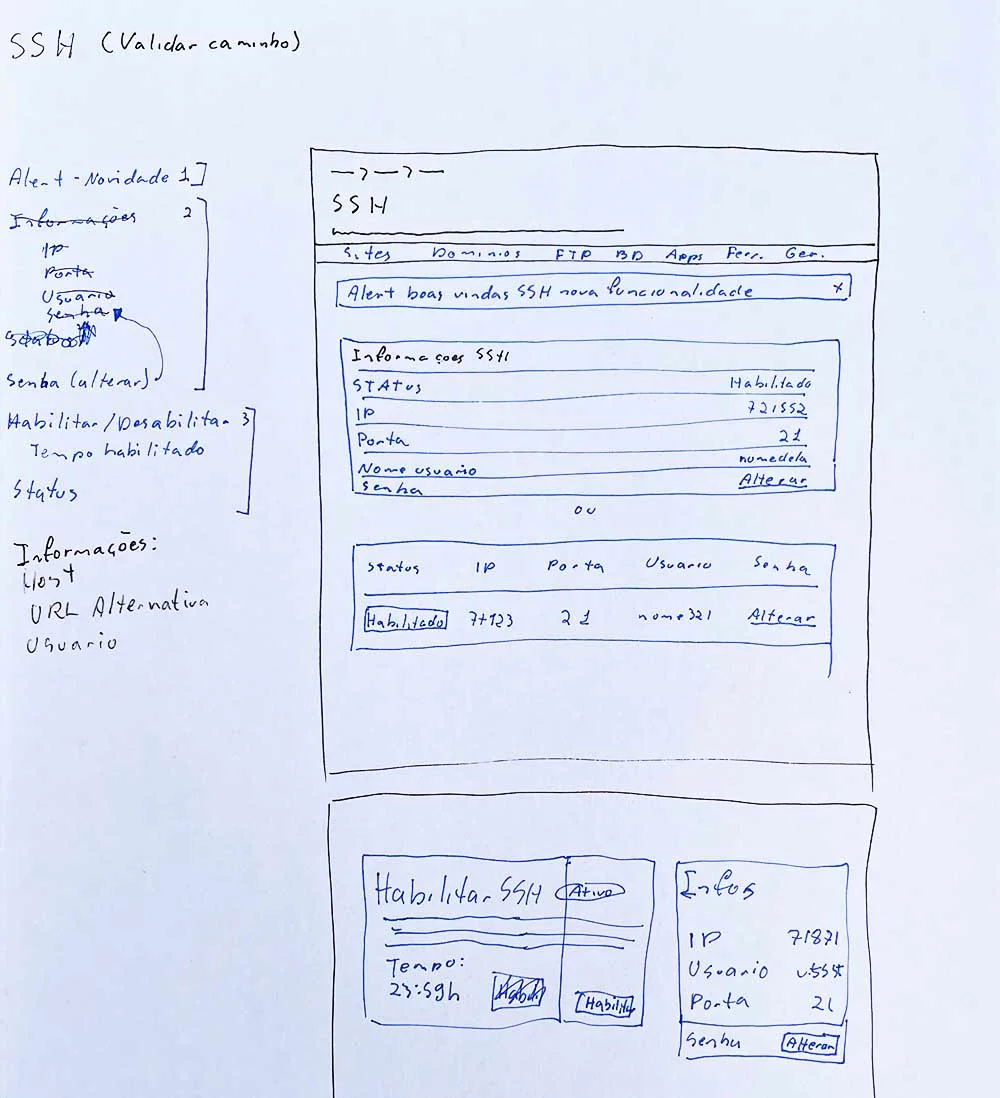 SSH (Validar caminho)
Alert - Novidade 1
Informações 2
IP
Porta
Usuario
Senha
Senha (alterar)
Habilitar/Desabilitar 3
Tempo habilitado
Status
Informações:
Host
URL Alternativa
Usuario
SSH
Sites Dominios FTP BD Apps Ferr. Ger.
Alert boas vindas SSH nova funcionalidade x
Informaçoes SSH
STATUS Habilitado
IP 721552
Porta 21
Nome usuario nomedela
Senha Alterar
ou
Status IP Porta Usuario Senha
Habilitado 7+123 21 nome321 Alterar
Habilitar SSH Ativo
Tempo:
23:59h Habili
Habilita
Infos
IP 71871
Usuario
Porta 21
Senha Alterar